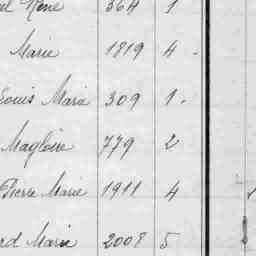 René 364 1
Marie 1819 4 -
Louis Marie 309 1 -
Magloire 779 2
Pierre Marie 1911 4
Marie 2008 5